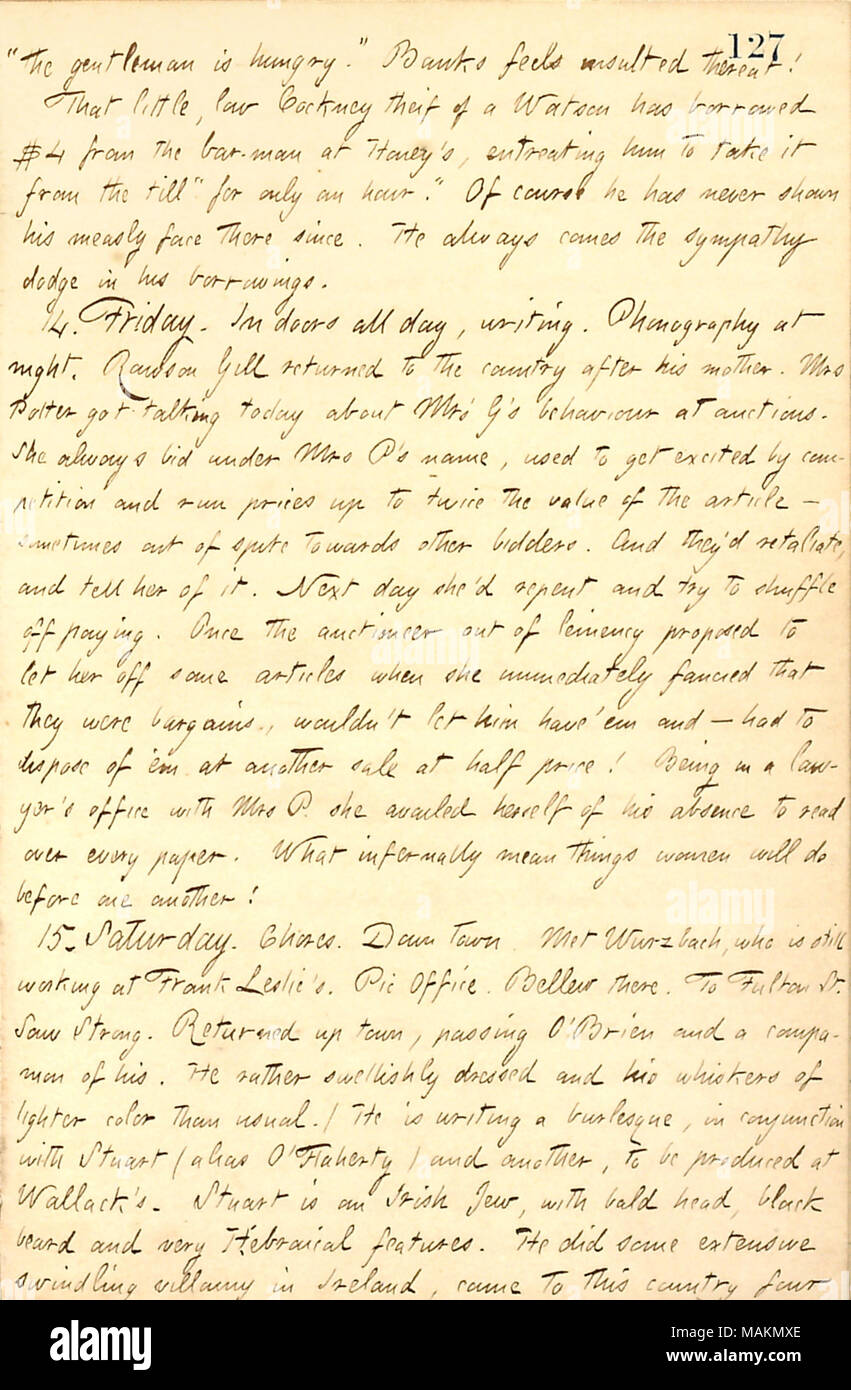 127
"the gentleman is hungry." Banks feels insulted thereat!
That little, low Cockney theif of a Watson has borrowed
$4 from the bar-man at Honey's, entreating him to take it
from the till "for only an hour." Of course he has never shown
his measly face there since. He always comes the sympathy
dodge in his borrowings.
14. Friday. In doors all day, writing. Phonography at
night. Rawson Gill returned to the country after his mother. Mrs
Potter got talking today about Mrs G's behaviour at auctions.
She always bid under Mrs P's name, used to get excited by com-
petition and run prices up to twice the value of the article —
sometimes out of spite towards other bidders. And they'd retaliate,
and tell her of it. Next day she'd repent and try to shuffle
off paying. Once the auctioneer out of leniency proposed to
let her off some articles when she immediately fancied that
they were bargains, wouldn't let him have 'em and — had to
dispose of 'em at another sale at half price! Being in a law-
yer's office with Mrs P. she availed herself of his absence to read
over every paper. What infernally mean things women will do
before one another!
15. Saturday. Chores. Down town. Met Wurzbach, who is still
working at Frank Leslie's. Pic Office. Bellew there. To Fulton St.
Saw Strong. Returned up town, passing O'Brien and a compa-
nion of his. He rather swellishly dressed and his whiskers of
lighter color than usual. / He is writing a burlesque, in conjunction
with Stuart (alias O'Flaherty) and another, to be produced at
Wallack's. Stuart is an Irish Jew, with bald head, black
beard and very Hebraical features. He did some extensive
swindling villainy in Ireland, came to this country four
alamy
Image ID: MAKMXE
www.alamy.com